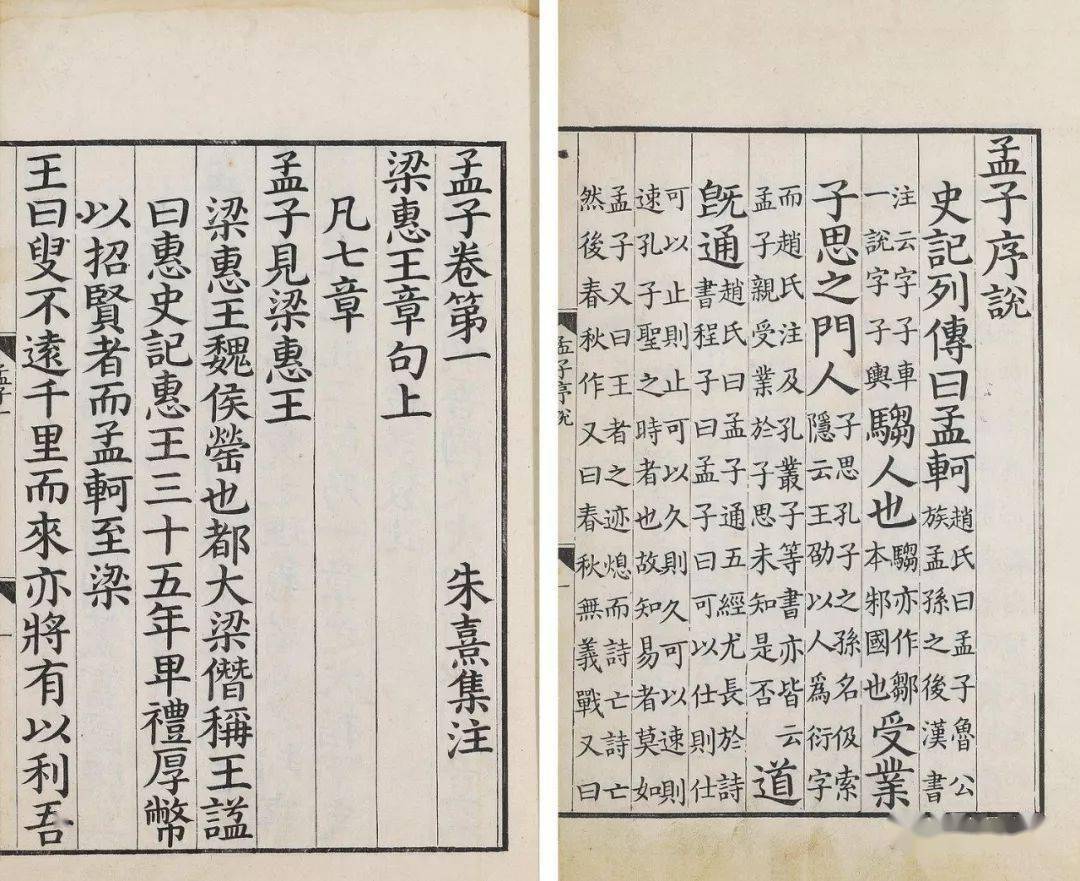 孟子序說
史記列傳曰孟軻趙氏曰孟子魯公族孟孫之後漢書
注云字子車一說字子輿騶人也騶亦作鄒本邾國也受業
子思之門人子思孔子之孫名伋索隱云王劭以人爲衍字
而趙氏注及孔叢子等書亦皆云孟子親受業於子思未知是否道
旣通趙氏曰孟子通五經尤長於詩書程子曰孟子曰可以仕則仕
可以止則止可以久則久可以速則速孔子聖之時者也故知易者莫如
孟子又曰王者之迹熄而詩亡詩亡然後春秋作又曰春秋無義戰又曰
孟子序說
一
孟子卷第一 朱熹集注
梁惠王章句上
凡七章
孟子見梁惠王
梁惠王魏侯罃也都大梁僭稱王諡
曰惠史記惠王三十五年卑禮厚幣
以招賢者而孟軻至梁
王曰叟不遠千里而來亦將有以利吾
孟子一
一